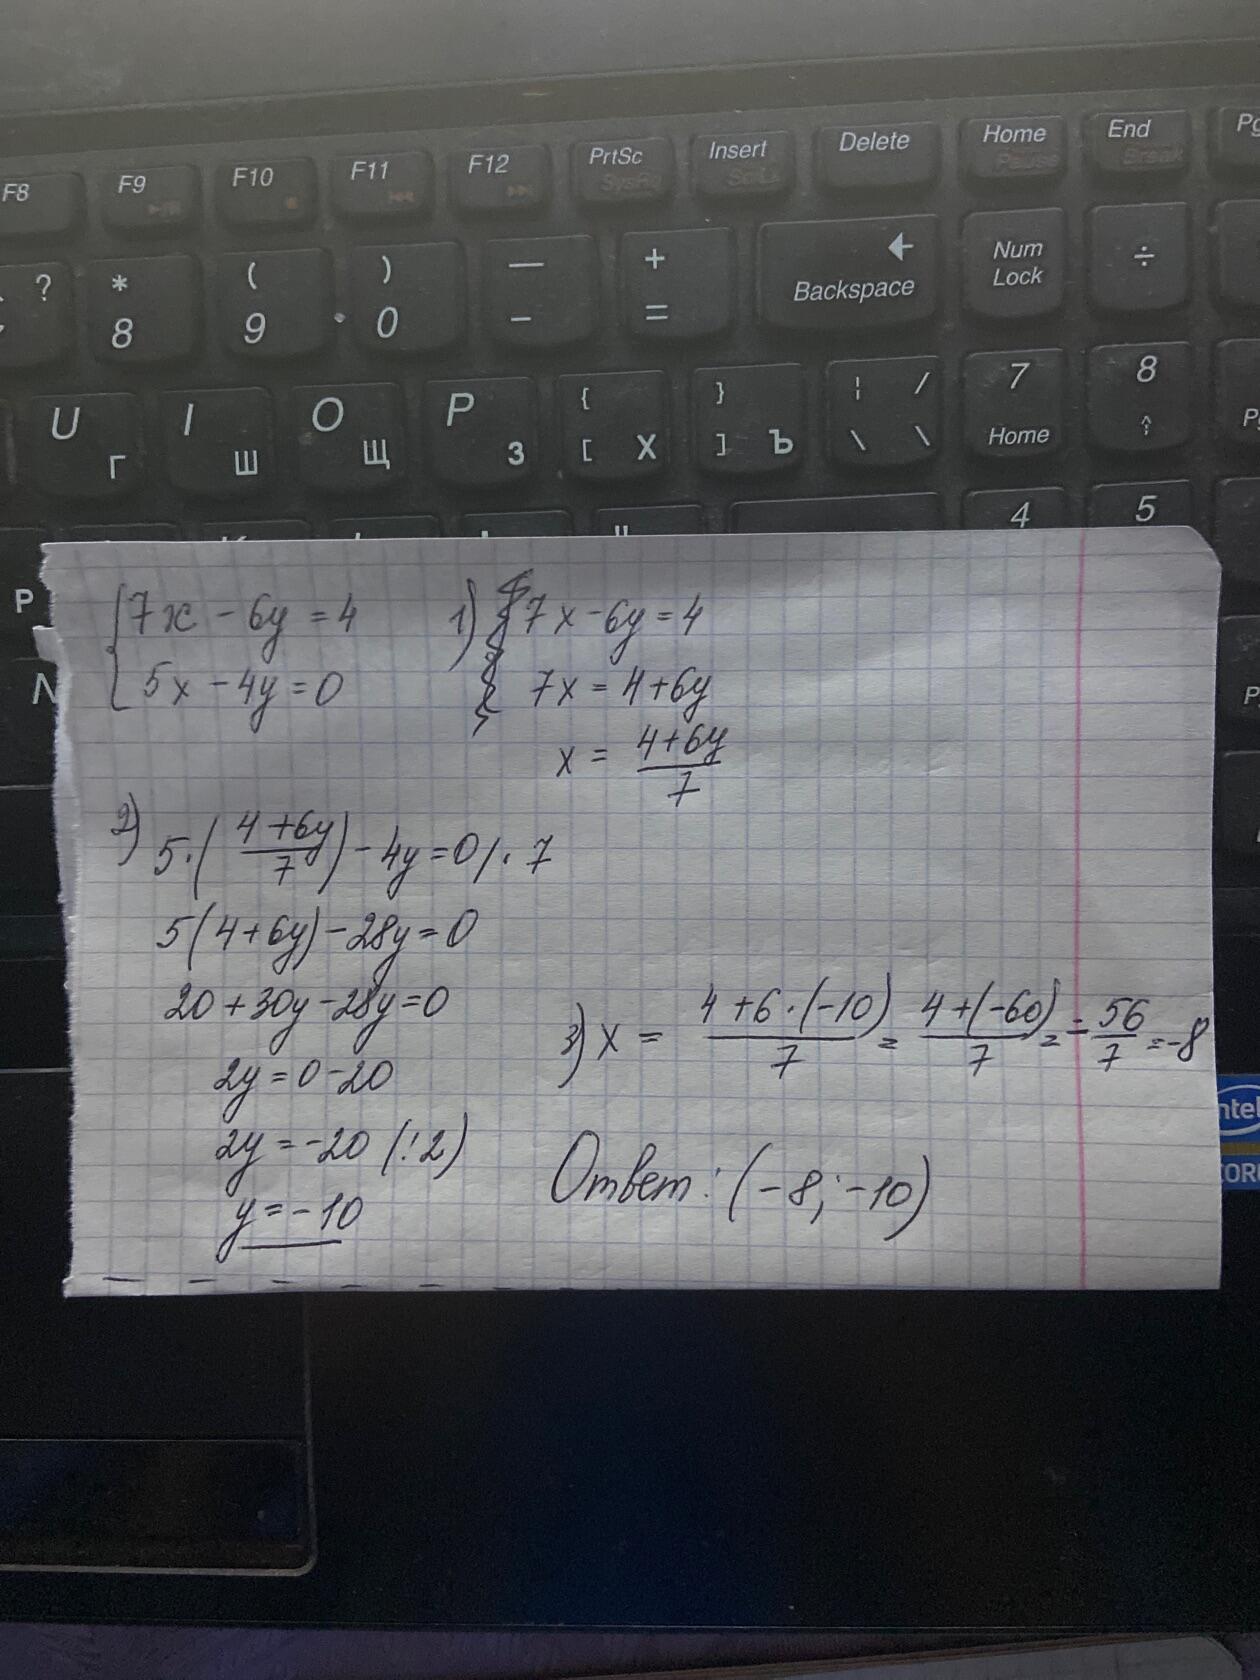 F8 F9 F10 F11 F12 PrtSc Insert Delete Home End
SysRq Pause Break
? * ( ) — + Backspace Num Lock ÷
8 9 0 - =
U I O P { } ¦ / 7 8
Г Ш Щ З [ Х ] Ъ \ \ Home
4 5
P
N
7x - 6y = 4
5x - 4y = 0
1) 7x - 6y = 4
7x = 4+6y
x = (4+6y)/7
2) 5·((4+6y)/7) - 4y = 0 /· 7
5(4+6y) - 28y = 0
20+30y-28y=0
2y = 0-20
2y = -20 (:2)
y = -10
3) x = (4+6·(-10))/7 = (4+(-60))/7 = -56/7 = -8
Ответ: (-8; -10)
intel
CORE